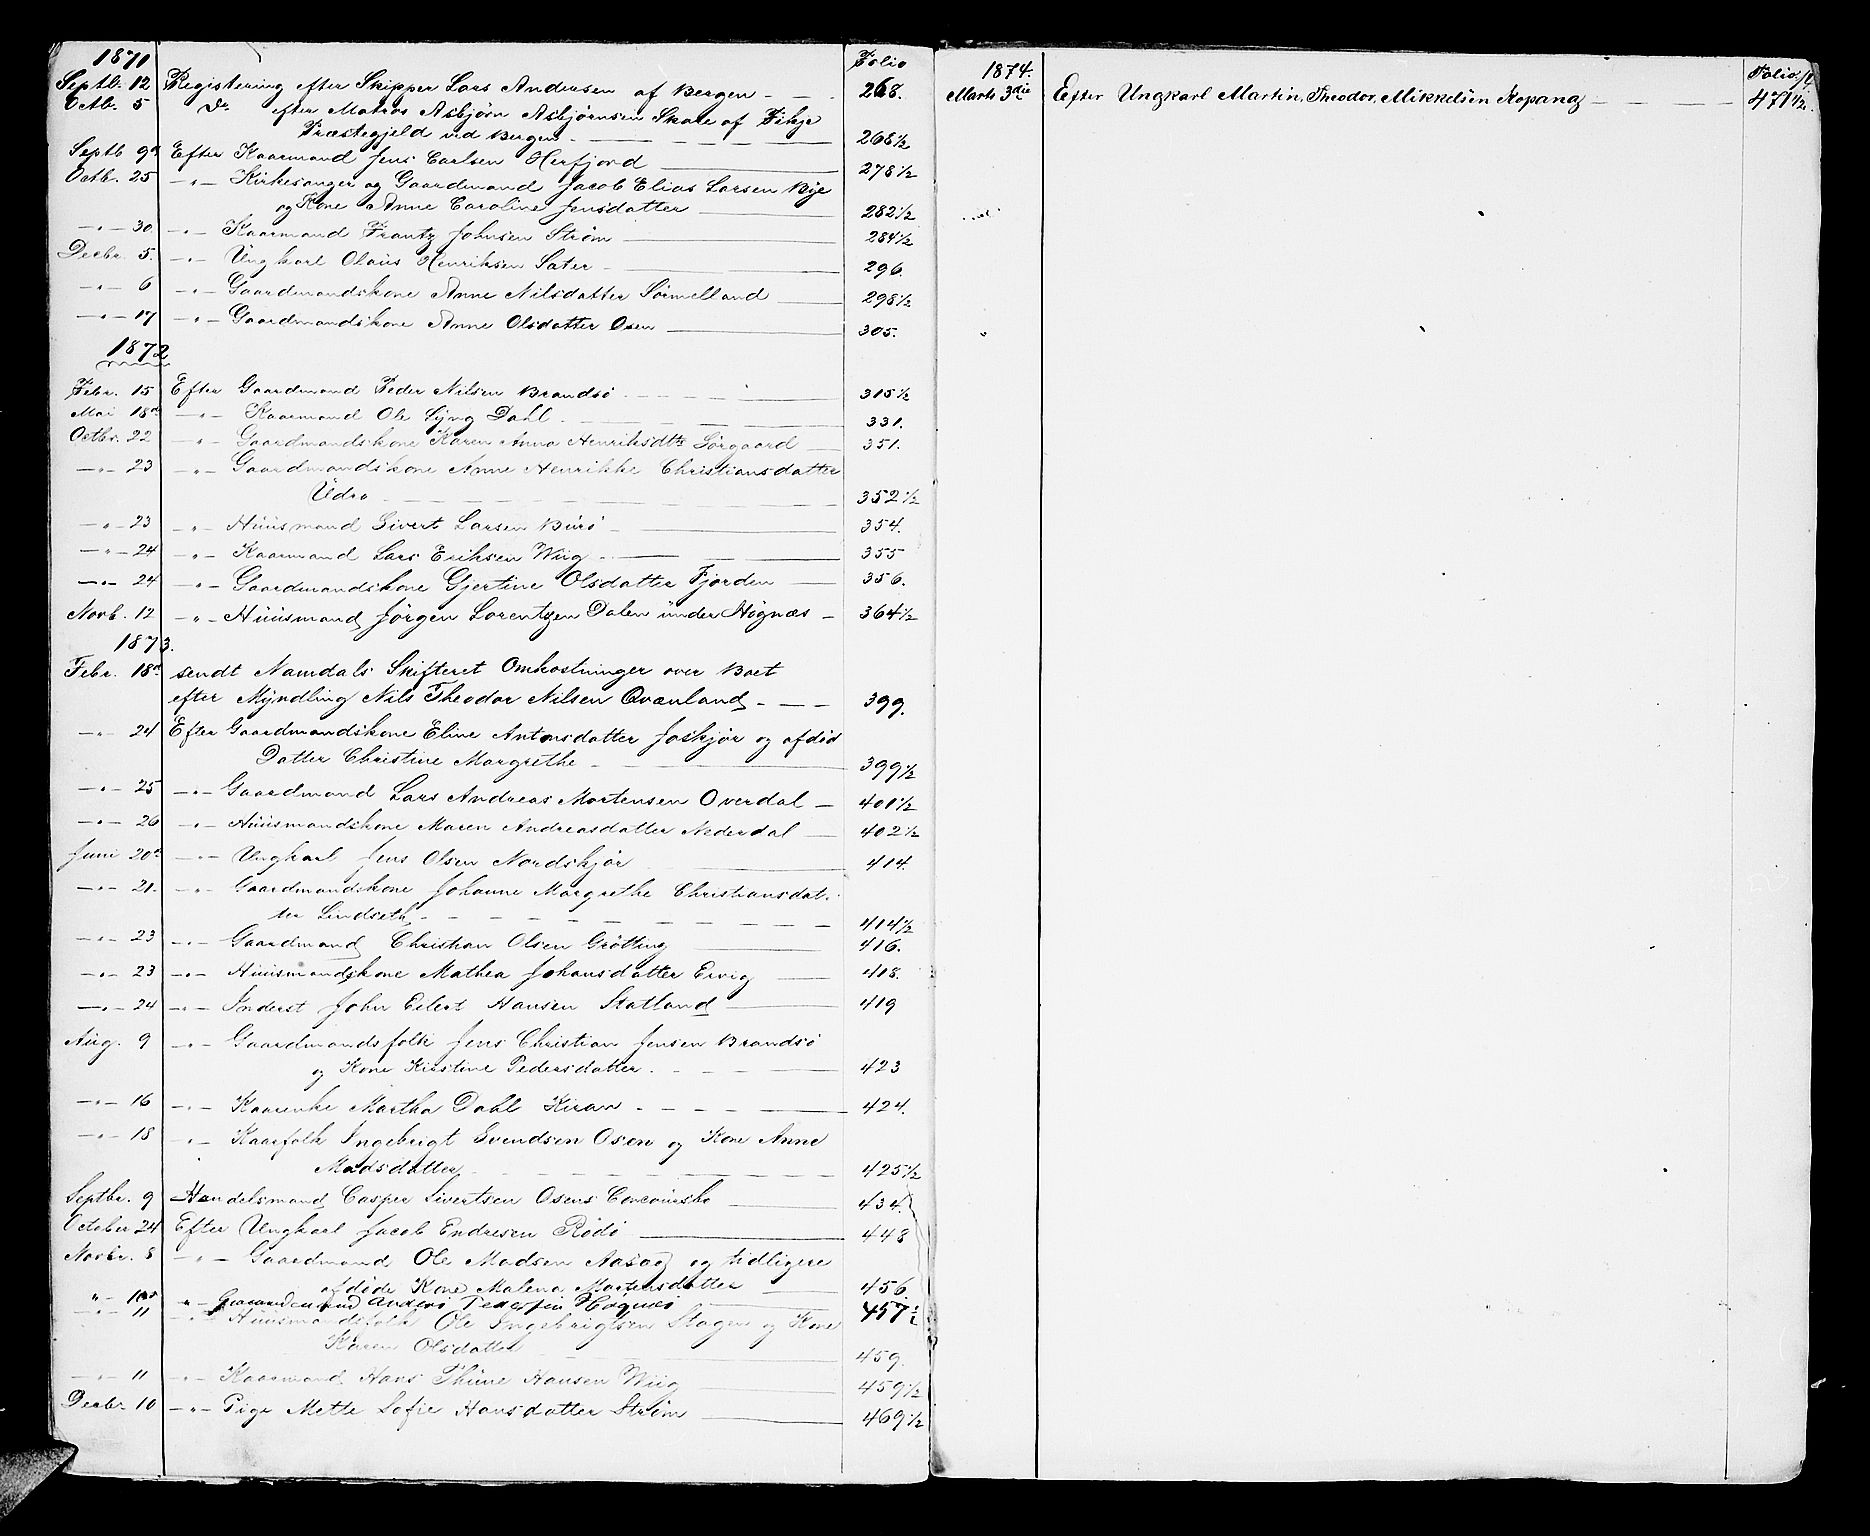 1871 Folio
Septb. 12 Registering efter Skipper Lars Andersen af Bergen 268.
Octb. 5 Do efter Matros Asbjørn Asbjørnsen Skare af
Præstegjeld ved Bergen 268 1/2
Septb 9de Efter Kaarmand Jens Carlsen Herfjord 278 1/2
Octb. 25 -"- Kirkesanger og Gaardmand Jacob Elias Larsen Bye
og Kone Anne Caroline Jensdatter 282 1/2
-"- 30. -"- Kaarmand Frantz Johnsen Strøm 284 1/2
Decbr. 5. -"- Ungkarl Olaus Henriksen Sater 296.
-"- 6 -"- Gaardmandskone Anne Nilsdatter Sørmelland 298 1/2
-"- 17 -"- Gaardmandskone Anne Olsdatter Osen 305.
1872
Febr. 15 Efter Gaardmand Peder Nilsen Brandsø 315 1/2
Mai 18de -"- Kaarmand Ole Lyng Dahl 331.
Octbr. 22 -"- Gaardmandskone Karen Anna Henriksdtr Sørgaard 351.
-"- 23 -"- Gaardmandskone Anne Henrikke Christiansdatter
Udrø 352 1/2
-"- 23 -"- Huusmand Sivert Larsen Burø 354.
-"- 24 -"- Kaarmand Lars Eriksen Wiig 355
-"- 24 -"- Gaardmandskone Gjertine Olsdatter Fjorden 356.
Novb. 12 -"- Huusmand Jørgen Lorentzen Dalen under Høgnæs 364 1/2
1873.
Febr. 18de sendt Namdals Skifteret Omkostninger over Boet
efter Myndling Nils Theodor Nilsen Qvænland 399.
-"- 24 Efter Gaardmandskone Eline Antonsdatter Joskjør og afdød
Datter Christine Margrethe 399 1/2
-"- 25 -"- Gaardmand Lars Andreas Mortensen Overdal 401 1/2
-"- 26 -"- Huusmandskone Maren Andreasdatter Nederdal 402 1/2
Juni 20de -"- Ungkarl Jens Olsen Nordskjør 414.
-"- 21. -"- Gaardmandskone Johanne Margrethe Christiansdat-
ter Lindseth 414 1/2
-"- 23 -"- Gaardmand Christian Olsen Grøtting 416.
-"- 23 -"- Huusmandskone Mathea Johansdatter Ervig 418.
-"- 24 -"- Inderst John Eilert Hansen Statland 419
Aug. 9 -"- Gaardmandsfolk Jens Christian Jensen Brandsø
og Kone Kirstine Pedersdatter 423
-"- 16 -"- Kaarenke Martha Dahl Kiran 424.
-"- 18 -"- Kaarfolk Ingebrigt Svendsen Osen og Kone Anne
Madsdatter 425 1/2
Septbr. 9 Handelsmand Casper Sivertsen Osens Concoursbo 434.
October 24 Efter Ungkarl Jacob Endresen Rødø 448
Novbr. 8 -"- Gaardmand Ole Madsen Aasag og tidligere
afdøde Kone Malena Mortensdatter 456.
" - 10de " - Gaardmand Anders Pedersen Høgnes 457 1/2
-"- 11 -"- Huusmandsfolk Ole Ingebrigtsen Stagen og Kone
Karen Olsdatter 459.
-"- 11 -"- Kaarmand Hans Thune Hansen Wiig 459 1/2
Decbr. 10 -"- Pige Mette Sofie Hansdatter Strøm 469 1/2
1874. Folio
Marts 3die Efter Ungkarl Martin Theodor Mikkelsen Kopang 471 1/2.